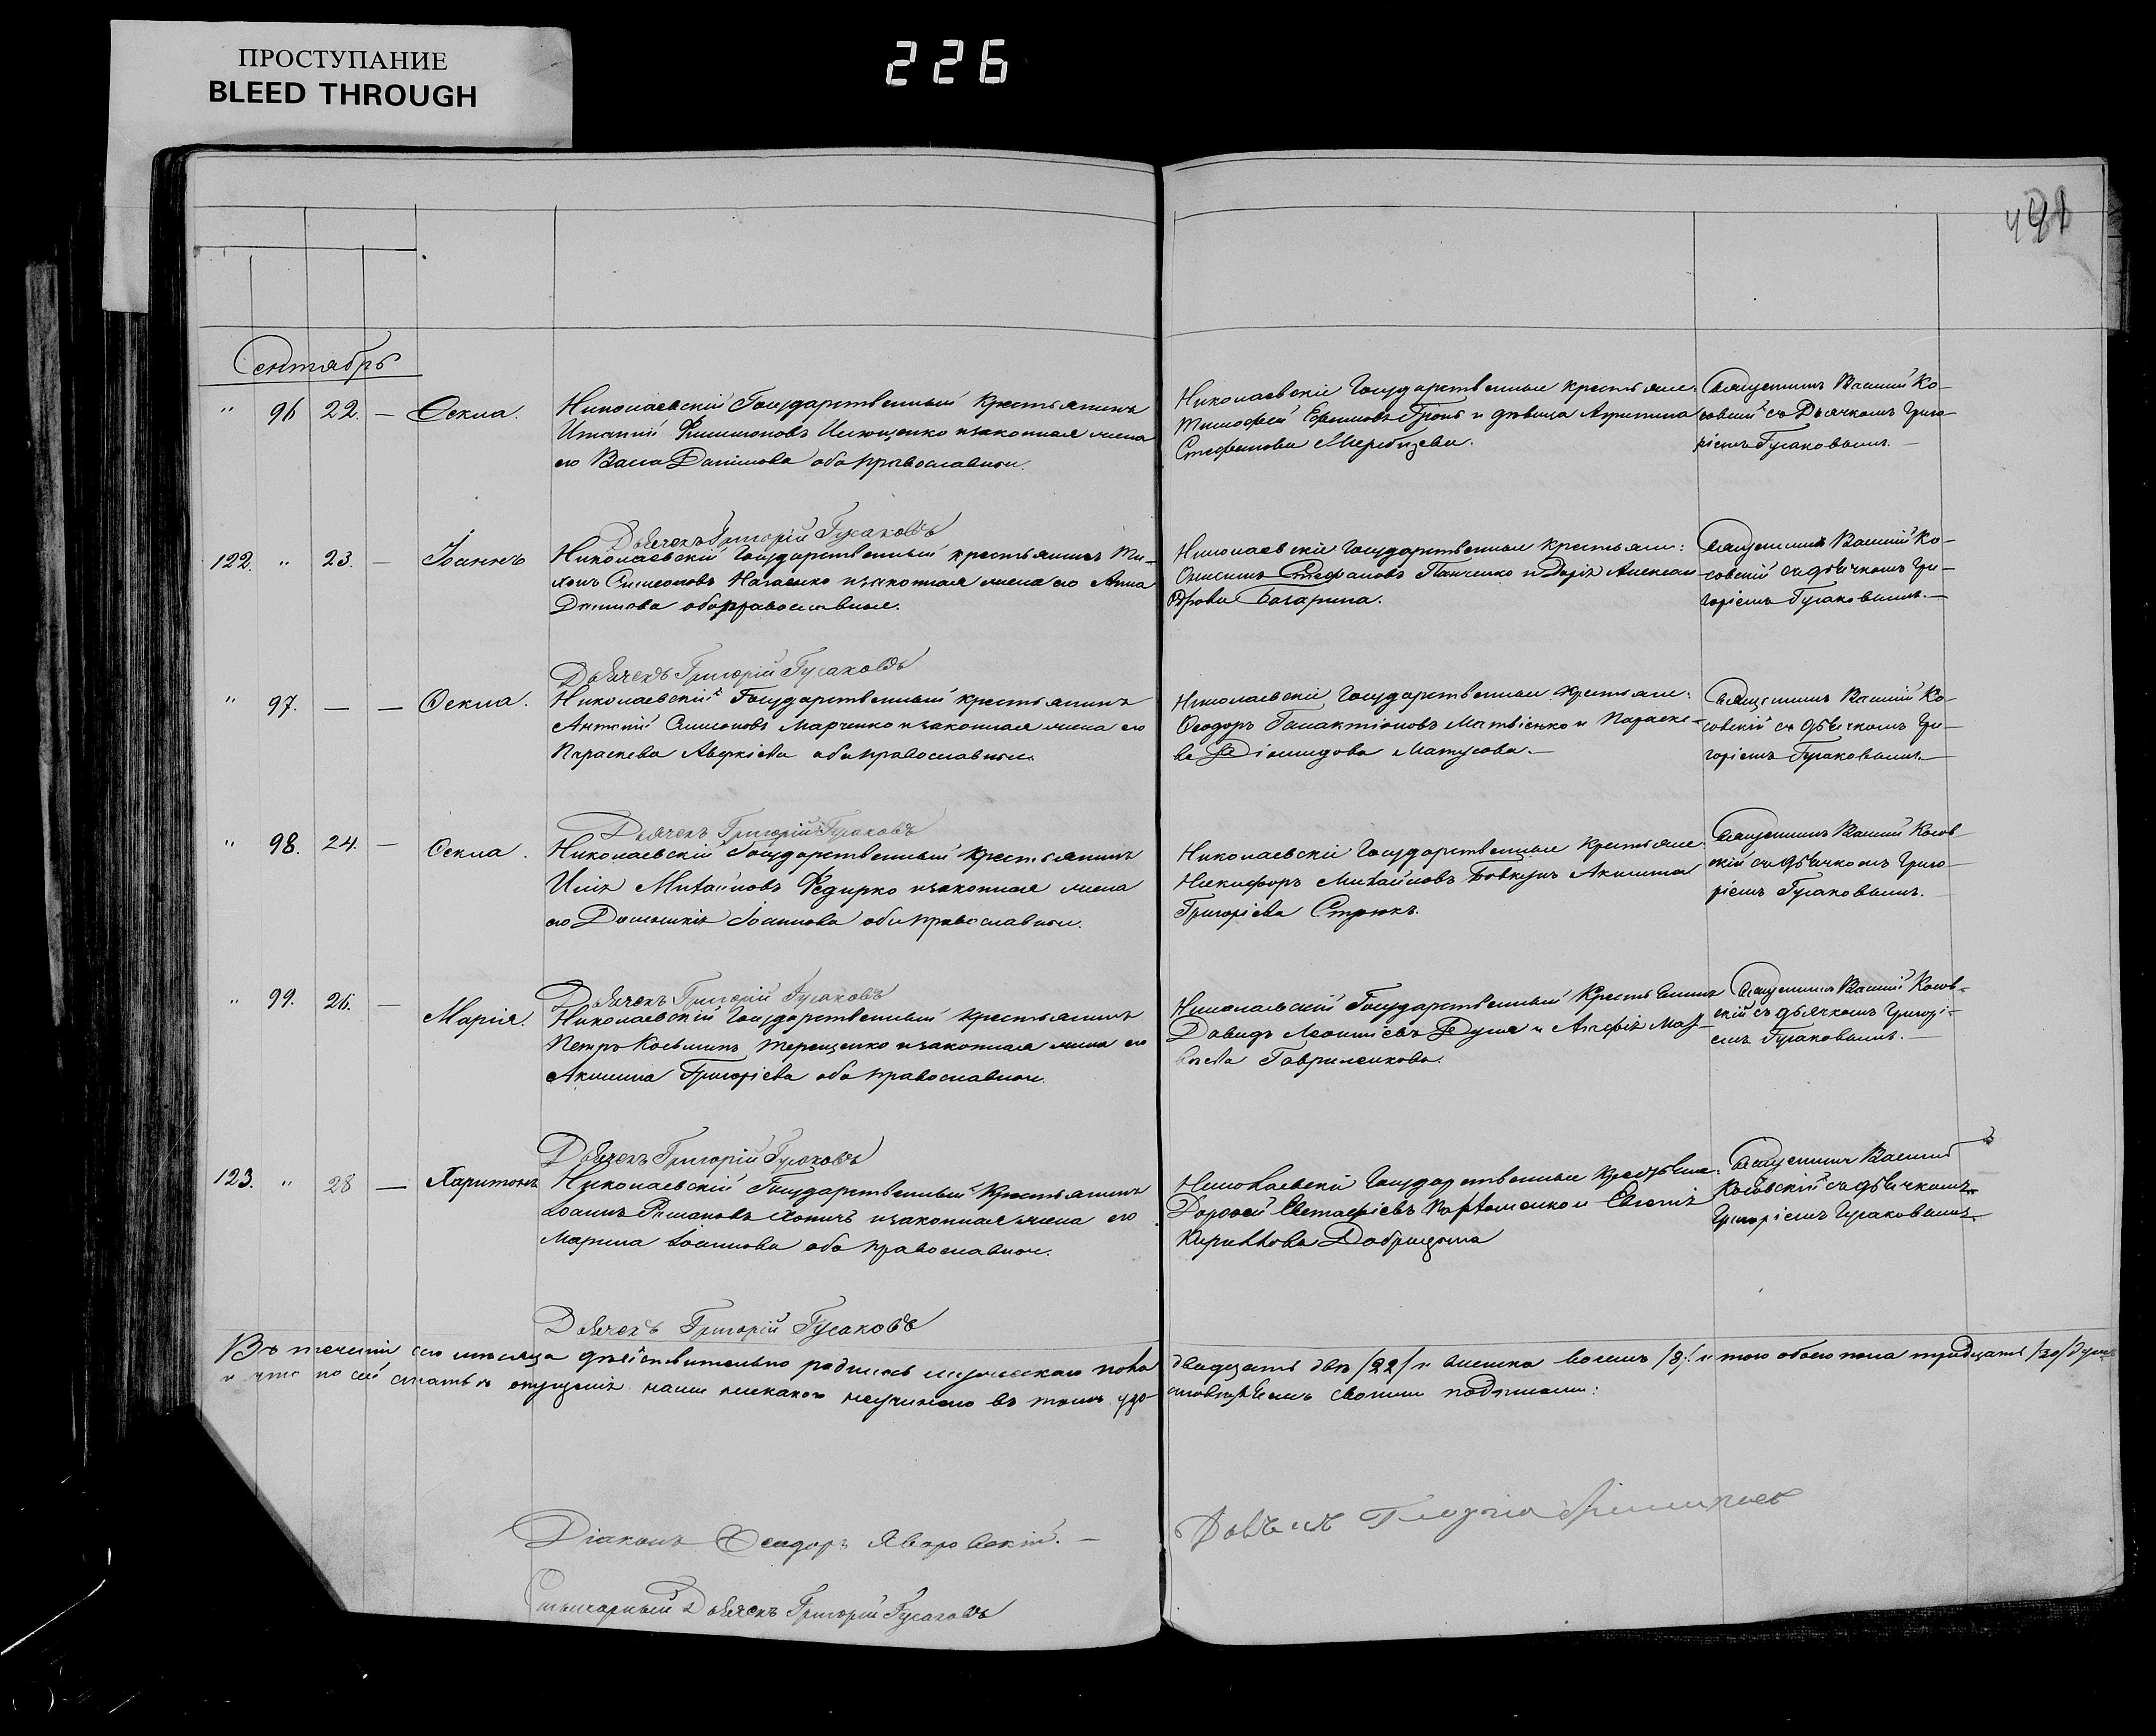 ПРОСТУПАНИЕ
BLEED THROUGH
226
491
Сентябрь
" 96 22. — Ѳекла.
Николаевскій Государственный Крестьянинъ
Филимоновъ и законная жена
его Васса Данилова оба православные.
Николаевскіе Государственные крестьяне:
Тимофей Ефимовъ и дѣвица Агрипина
Стефанова
Священникъ Василій Ко-
совскій съ Дьячкомъ Григо-
ріемъ Гусаковымъ. —
Дьячекъ Григорій Гусаковъ
122. " 23. — Іоаннъ
Николаевскій Государственный крестьянинъ Ти-
хонъ Симеоновъ и законная жена его Анна
оба православные.
Николаевскіе Государственные крестьяне:
Стефановъ Панченко и Дарія Алексан-
дрова
Священникъ Василій Ко-
совскій съ дьячкомъ Гри-
горіемъ Гусаковымъ. —
Дьячекъ Григорій Гусаковъ
" 97. — — Ѳекла.
Николаевскій Государственный крестьянинъ
Антоній Симоновъ Марченко и законная жена его
Параскева Аверкіева оба православные.
Николаевскіе Государственные крестьяне:
Ѳеодоръ Галактіоновъ Матвіенко и Параске-
ва Діомидова Матусова. —
Священникъ Василій Ко-
совскій съ дьячкомъ Гри-
горіемъ Гусаковымъ. —
Дьячекъ Григорій Гусаковъ
" 98. 24. — Ѳекла.
Николаевскій Государственный Крестьянинъ
Илія Михайловъ Федирко и законная жена
его Домникія Іоаннова оба православные.
Николаевскіе Государственные Крестьяне:
Никифоръ Михайловъ Бовкунъ Акилина
Григоріева Стрюкъ.
Священникъ Василій Косов-
скій съ дьячкомъ Григо-
ріемъ Гусаковымъ.
Дьячекъ Григорій Гусаковъ
" 99. 26. — Марія.
Николаевскій Государственный крестьянинъ
Петръ Косьминъ Терещенко и законная жена его
Акилина Григоріева оба православные.
Николаевскій Государственный Крестьянинъ
Давидъ Леонтіевъ Дуля и Агафія
Гавриленкова.
Священникъ Василій Косов-
скій съ дьячкомъ Григорі-
емъ Гусаковымъ. —
Дьячекъ Григорій Гусаковъ
123. " 28 — Харитонъ
Николаевскій Государственный Крестьянинъ
Іоаннъ и законная жена его
Марина Іоаннова оба православные.
Николаевскіе Государственные Крестьяне:
Дорофей Евстафіевъ Пархоменко и Евгенія
Кирилова
Священникъ Василій
Косовскій съ дьячкомъ
Григоріемъ Гусаковымъ.
Дьячекъ Григорій Гусаковъ
Въ теченіи сего мѣсяца дѣйствительно родилось мужескаго пола двадцать два /22/ и женска восемь /8/. и того обоего пола тридцать /30/ душъ
и что по сей статьѣ опущенія нами никакого неучинено въ томъ удо- стовѣряемъ своими подписями:
Діаконъ Ѳеодоръ Яворовскій. —
Дьячекъ Григорій Гусаковъ